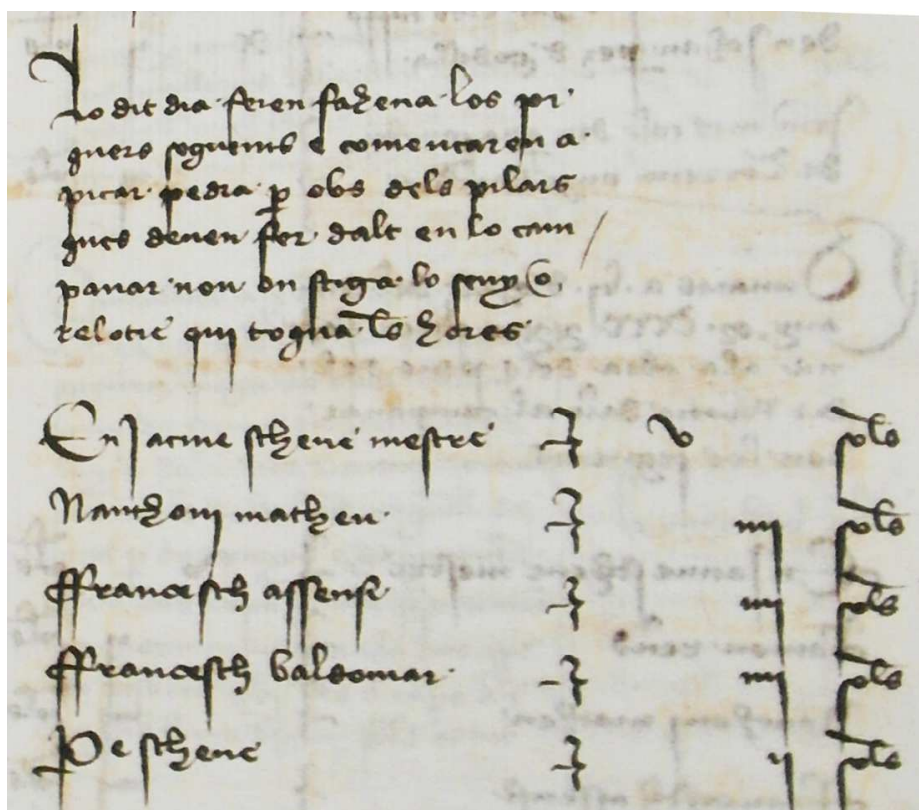 Lo dit dia feren fahena los pi
quers seguents e comencaren a
picar pedra p obs dels pilars
ques deuen fer dalt en lo cam
panar nou on stiga lo seny o
relotie qui toqua ls hores
En Jacme stheue mestre v sols
Nanthoni matheu iiij sols
ffrancesch assensi iiij sols
ffrancesch baldomar iiij sols
Pe stheue ij sols